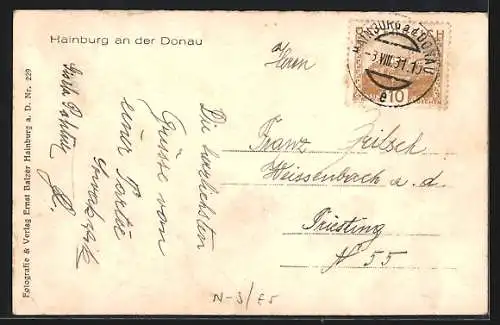 Hainburg an der Donau
HAINBURG a.d. DONAU
-3.VIII.31.15
e
10
Die herzlichsten
Grüsse von
einer Partie
Herrn
Franz
Weissenbach a. d.
Triesting
N 55
N-3/E5
Fotografie & Verlag Ernst Balzer Hainburg a. D. Nr. 229